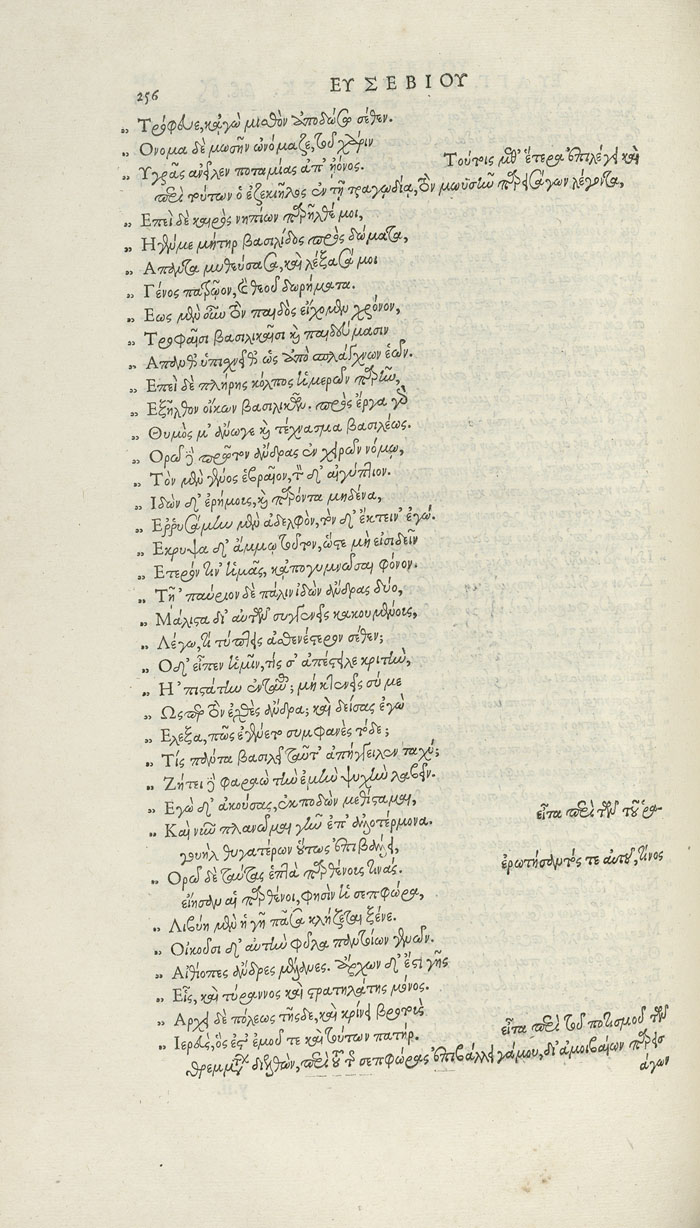 256
ΕΥΣΕΒΙΟΥ
„ Τρόφευε, κἀγὼ μισθὸν ἀποδώσω σέθεν.
„ Ονομα δὲ μωσῆν ὠνόμαζε, τοῦ χάριν
„ Υγρᾶς ἀνεῖλεν ποταμίας ἀπ' ἠόνος.
Τούτοις μεθ' ἕτερα ἐπιλέγει καὶ
περὶ τούτων ὁ ἐζεκιῆλος ἐν τῇ τραγῳδίᾳ, τὸν μωϋσῆν παρεισάγων λέγοντα,
„ Επεὶ δὲ καιρὸς νηπίων παρῆλθέ μοι,
„ Ηγέ με μήτηρ βασιλίδος πρὸς δώματα,
„ Απαντα μυθεύσασα, καὶ λέξασά μοι
„ Γένος πατρῷον, καὶ θεοῦ δωρήματα.
„ Εως μὲν οὖν τὸν παιδὸς εἴχομεν χρόνον,
„ Τροφαῖσι βασιλικαῖσι καὶ παιδεύμασιν
„ Απανθ' ὑπισχνεῖθ' ὡς ἀπὸ σπλάγχνων ἑῶν.
„ Επεὶ δὲ πλήρης κόλπος ἡμερῶν παρῆν,
„ Εξῆλθον οἴκων βασιλικῶν. πρὸς ἔργα γὰρ
„ Θυμός μ' ἄνωγε καὶ τέχνασμα βασιλέως.
„ Ορῶ δὲ πρῶτον ἄνδρας ἐν χειρῶν νόμῳ,
„ Τὸν μὲν γένος ἑβραῖον, τὸν δ' αἰγύπτιον.
„ Ιδὼν δ' ἐρήμους, καὶ παρόντα μηδένα,
„ Εῤῥυσάμην μὲν ἀδελφὸν, τὸν δ' ἔκτειν' ἐγώ.
„ Εκρυψα δ' ἄμμῳ τοῦτον, ὥστε μὴ εἰσιδεῖν
„ Ετερόν τιν' ἡμᾶς, κἀπογυμνῶσαι φόνον.
„ Τῇ 'παύριον δὲ πάλιν ἰδὼν ἄνδρας δύο,
„ Μάλιστα δ' αὐτῶν συγγενεῖς κακουμένοις,
„ Λέγω, τί τύπτεις ἀσθενέστερον σέθεν;
„ Ο δ' εἶπεν ἡμῖν, τίς σ' ἀπέστειλε κριτὴν,
„ Η' πιστάτην ἐνταῦθ'; μὴ κτενεῖς σύ με
„ Ωσπερ τὸν ἐχθὲς ἄνδρα; καὶ δείσας ἐγὼ
„ Ελεξα, πῶς ἐγένετο συμφανὲς τόδε;
„ Τίς πάντα βασιλεῖ ταῦτ' ἀπήγγειλεν ταχύ;
„ Ζητεῖ δὲ φαραὼ τὴν ἐμὴν ψυχὴν λαβεῖν.
„ Εγὼ δ' ἀκούσας, ἐκποδὼν μεθίσταμαι,
„ Καὶ νῦν πλανῶμαι γῆν ἐπ' ἀλλοτέρμονα.
εἶτα περὶ τῶν τοῦ ῥα-
γουὴλ θυγατέρων οὕτως ἐπιβάλλει,
„ Ορῶ δὲ ταύτας ἑπτὰ παρθένους τινάς.
ἐρωτήσαντός τε αὐτοῦ, τίνος
εἴησαν αἱ παρθένοι, φησὶν ἡ σεπφώρα,
„ Λιβύη μὲν ἡ γῆ πᾶσα κλήζεται ξένε.
„ Οἰκοῦσι δ' αὐτὴν φῦλα παντοίων γενῶν.
„ Αἰθίοπες ἄνδρες μέλανες. ἄρχων δ' ἔστι γῆς
„ Εἷς, καὶ τύραννος καὶ στρατηλάτης μόνος.
„ Αρχει δὲ πόλεως τῆσδε, καὶ κρίνει βροτοὺς
„ Ιερεὺς, ὅς ἐστ' ἐμοῦ τε καὶ τούτων πατήρ.
εἶτα περὶ τοῦ ποτισμοῦ τῶν
θρεμμάτων διελθὼν, περὶ τοῦ τῆς σεπφώρας ἐπιβάλλει γάμου, δι' ἀμοιβαίων παρεισ
άγων